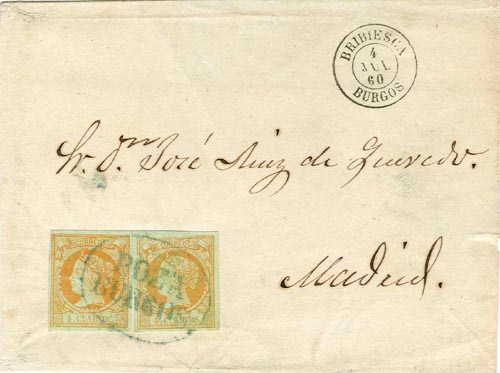 BRIBIESCA
4
JUL
60
BURGOS
Sr. Dn José Ruiz de Quevedo.
Madrid.
CORREOS CORREOS
POZA
4 CUARTOS 4 CUARTOS